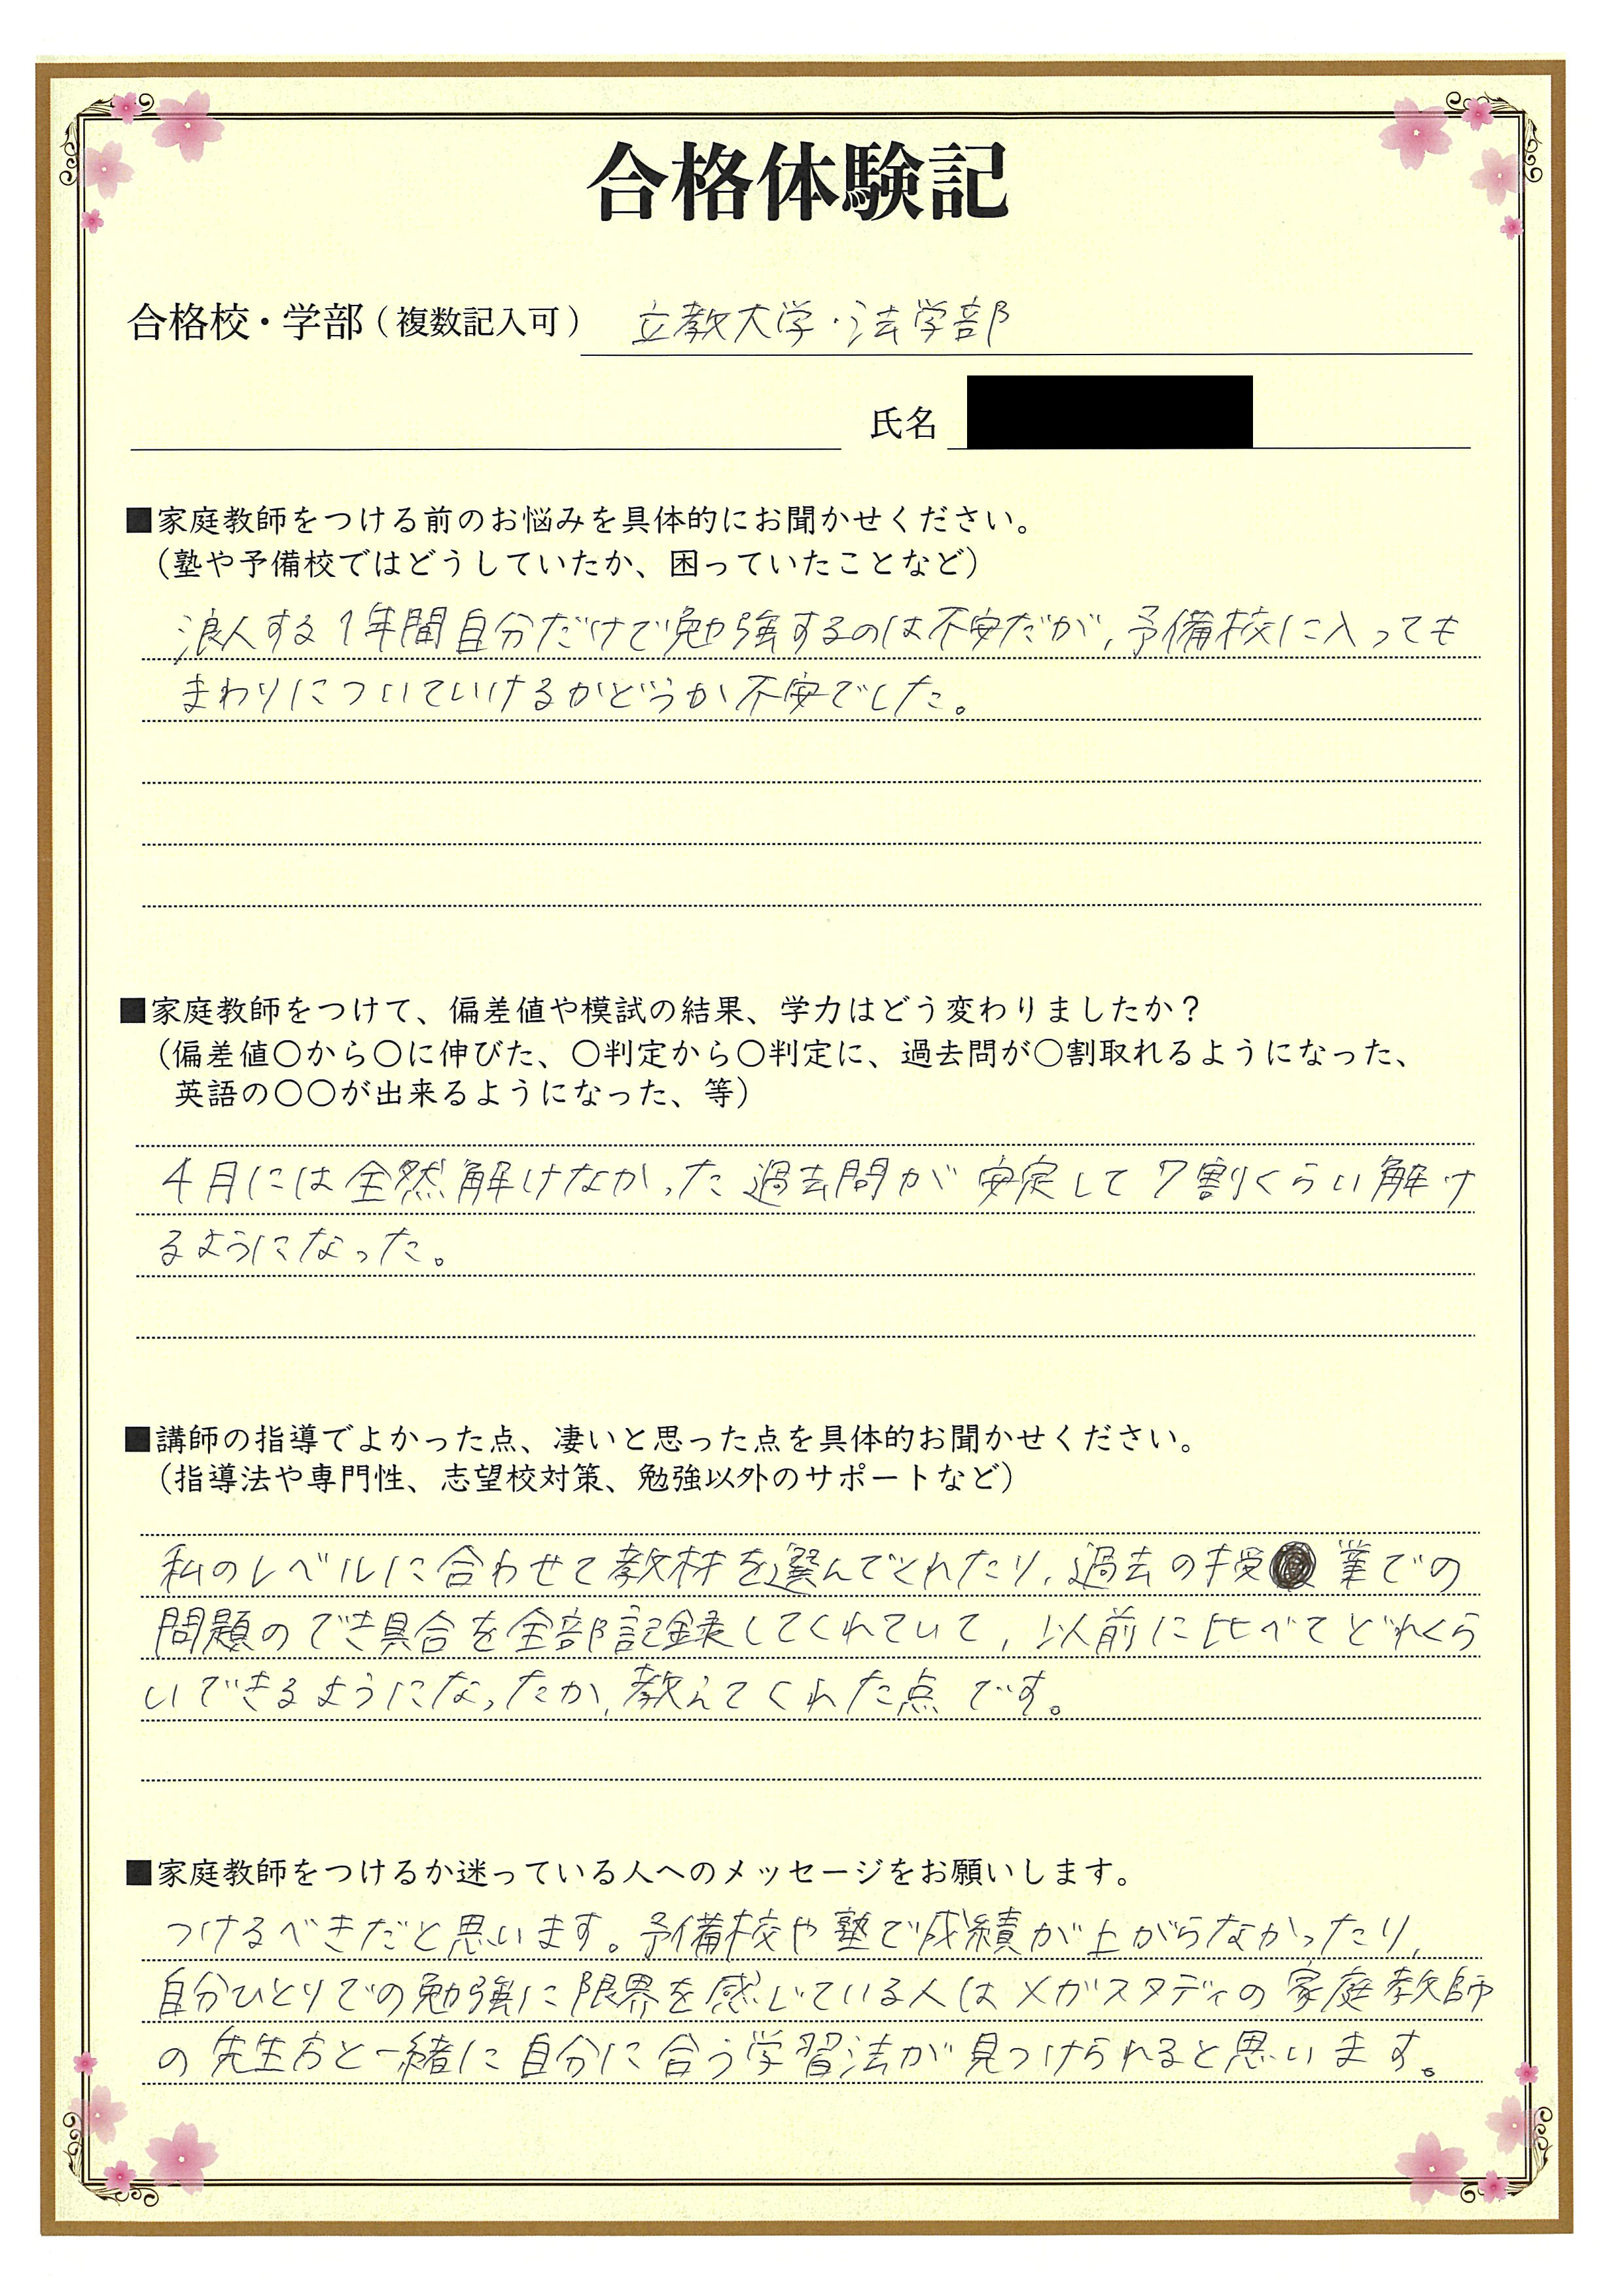 合格体験記
合格校・学部（複数記入可） 立教大学・法学部
氏名
■家庭教師をつける前のお悩みを具体的にお聞かせください。
（塾や予備校ではどうしていたか、困っていたことなど）
浪人する1年間自分だけで勉強するのは不安だが、予備校に入っても
まわりについていけるかどうか不安でした。
■家庭教師をつけて、偏差値や模試の結果、学力はどう変わりましたか？
（偏差値〇から〇に伸びた、〇判定から〇判定に、過去問が〇割取れるようになった、
英語の〇〇が出来るようになった、等）
4月には全然解けなかった過去問が安定して7割くらい解け
るようになった。
■講師の指導でよかった点、凄いと思った点を具体的お聞かせください。
（指導法や専門性、志望校対策、勉強以外のサポートなど）
私のレベルに合わせて教材を選んでくれたり、過去の授業での
問題のでき具合を全部記録してくれていて、以前に比べてどれくら
いできるようになったか、教えてくれた点です。
■家庭教師をつけるか迷っている人へのメッセージをお願いします。
つけるべきだと思います。予備校や塾で成績が上がらなかったり、
自分ひとりでの勉強に限界を感じている人はメガスタディの家庭教師
の先生方と一緒に自分に合う学習法が見つけられると思います。